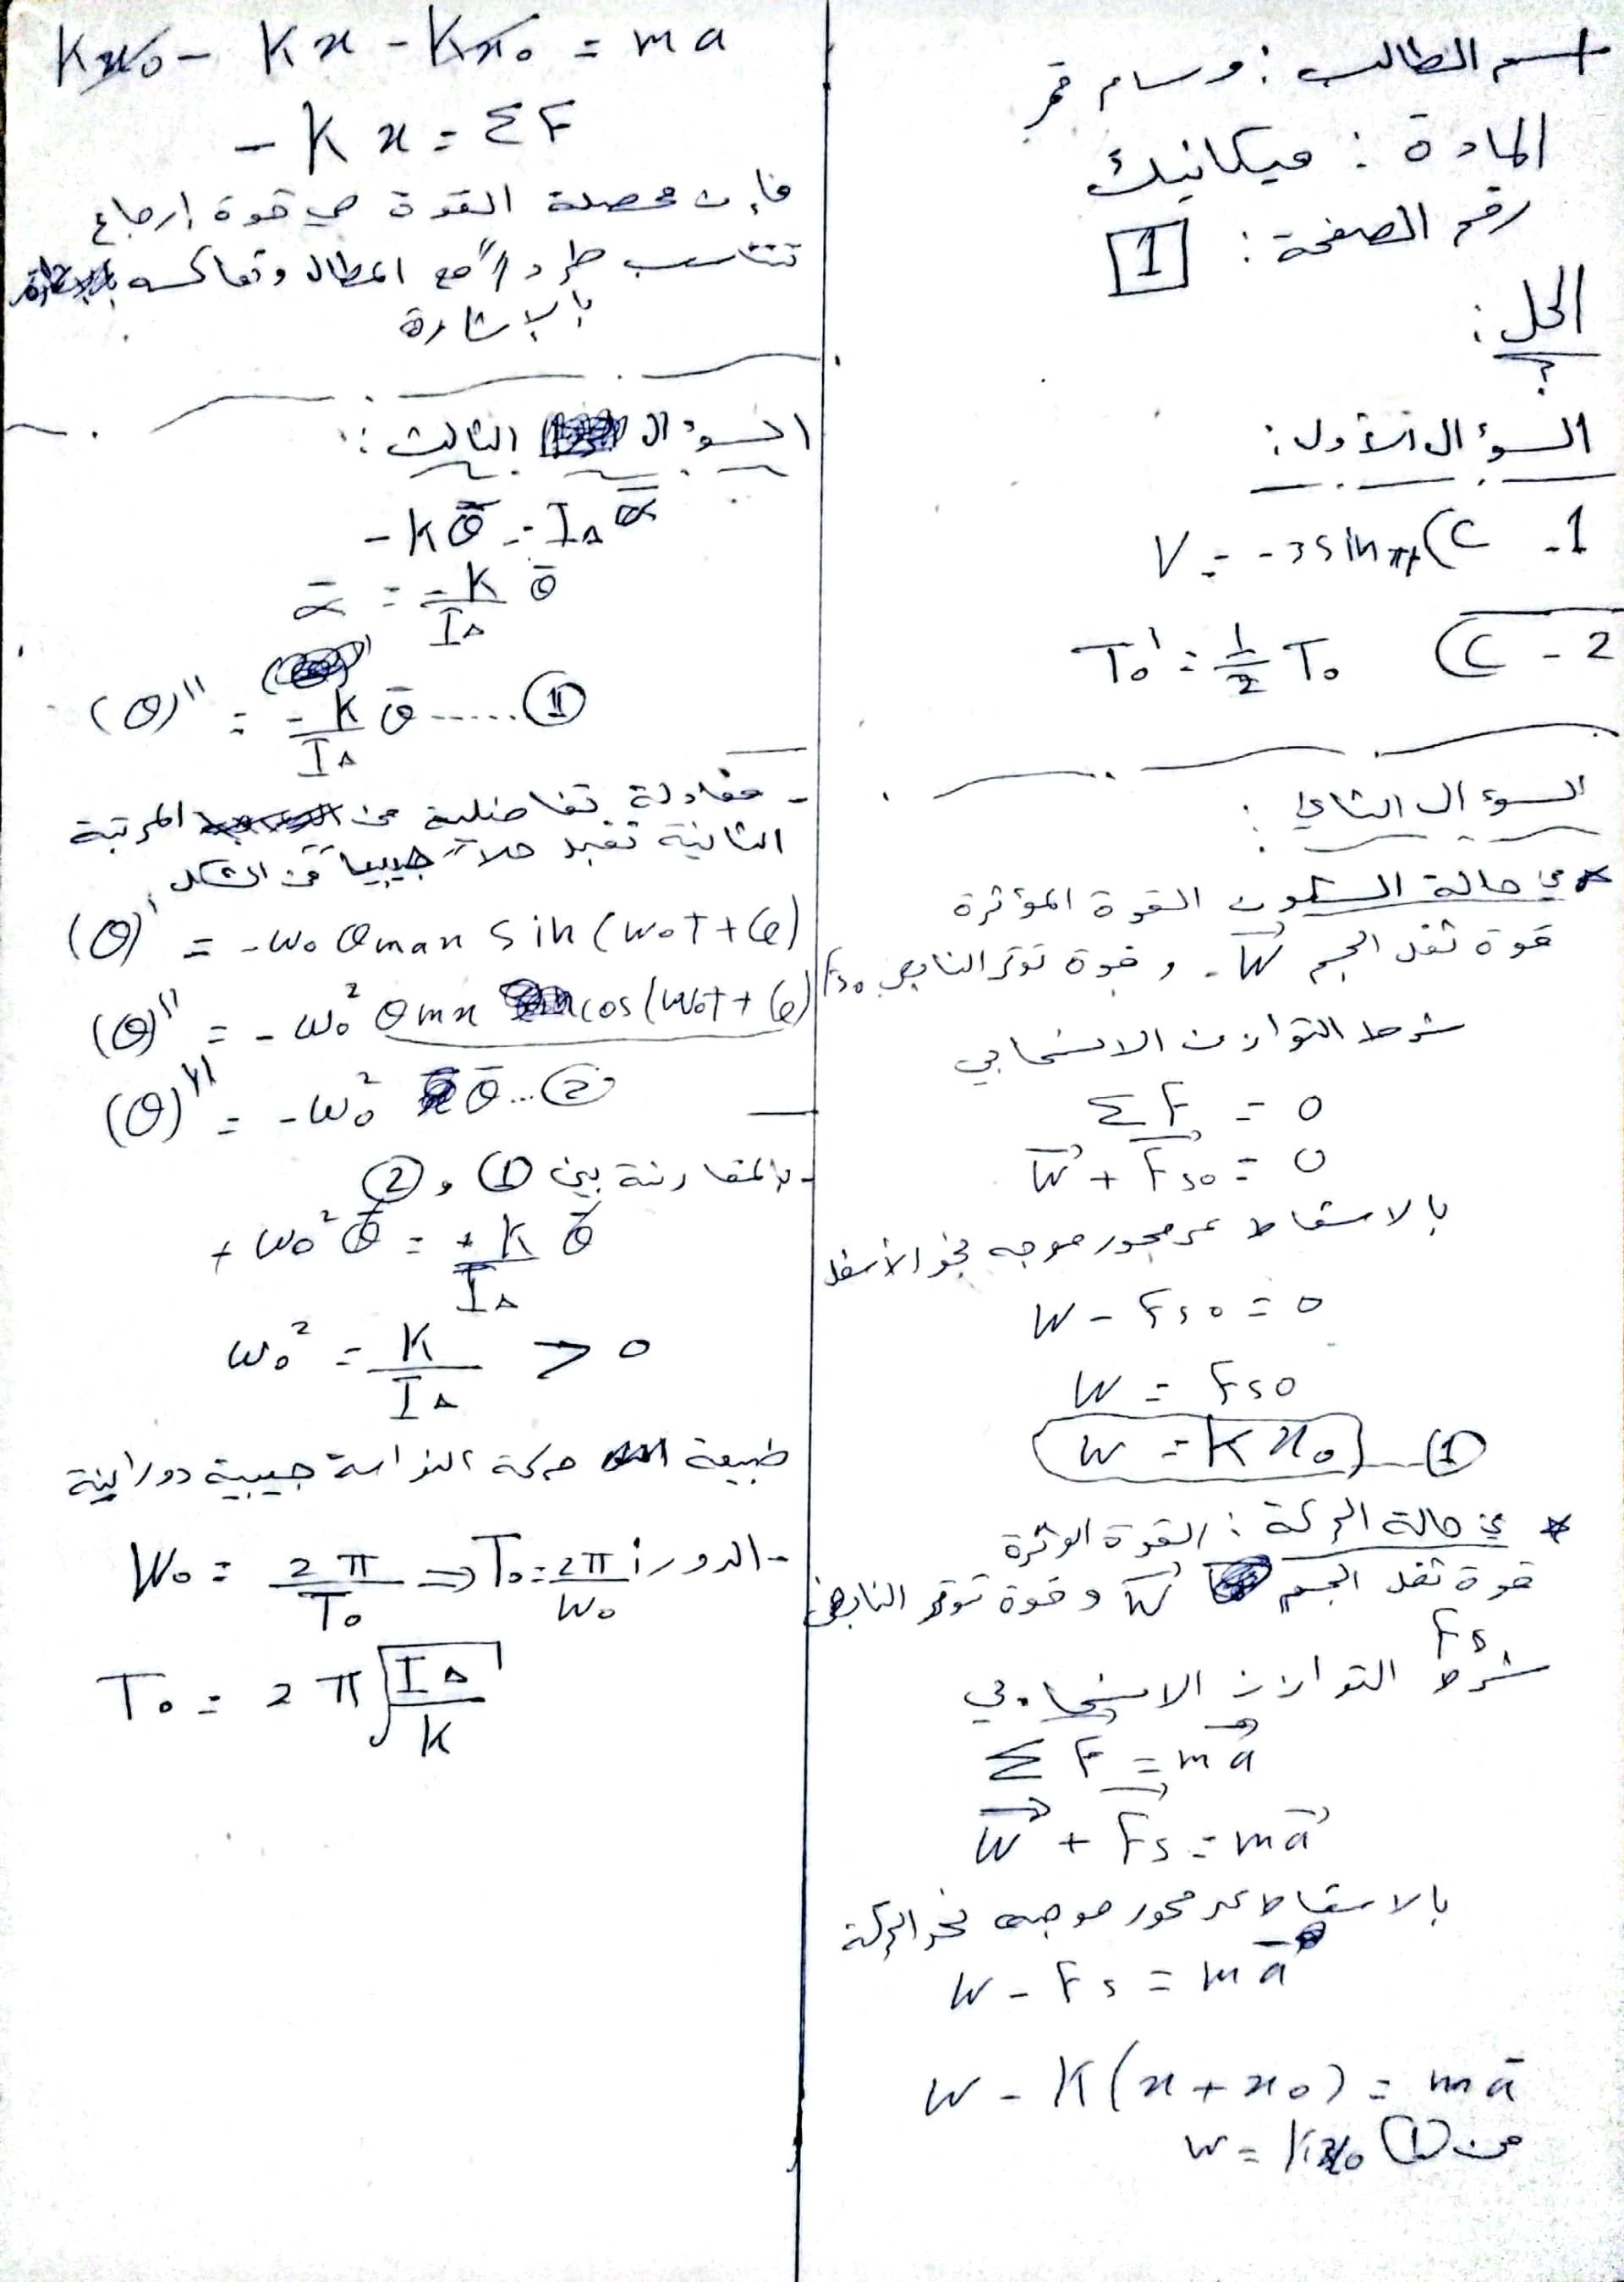 اسم الطالب : وسام قمر
المادة : ميكانيك
رقم الصفحة : 1
الحل :
السؤال الأول :
1 - C) V = -3 sin πt
2 - C) T₀' = 1/2 T₀
السوء ال الثاني :
* في حالة السكون القوة المؤثرة
قوة ثقل الجسم W . و قوة توتر النابض Fs₀
شرط التوازن الانسحابي
ΣF = 0
W + Fs₀ = 0
بالاسقاط عى محور موجه نحو الأسفل
W - Fs₀ = 0
W = Fs₀
W = K x₀ ... ①
* في حالة الحركة : القوة المؤثرة
قوة ثقل الجسم W و قوة توتر النابض
Fs
شرط التوازن الانسحابي
ΣF = ma
W + Fs = ma
بالاسقاط عى محور موجه نحو الحركة
W - Fs = ma
W - K(x + x₀) = ma
من ① W = Kx₀
Kx₀ - Kx - Kx₀ = ma
- Kx = ΣF
فإن محصلة القوة هي قوة إرجاع
تتناسب طرداً مع المطال وتعاكسه
بالإشارة
السوء ال الثالث :
-kθ = I∆ α
α = -K/I∆ θ
(θ)'' = -K/I∆ θ ...... ①
- معادلة تفاضلية من المرتبة
الثانية تقبل حلاً جيبياً من الشكل
(θ)' = -ω₀ θmax sin(ω₀t + φ)
(θ)'' = -ω₀² θmx cos(ω₀t + φ)
(θ)'' = -ω₀² θ ... ②
- بالمقارنة بين ① و ②
+ ω₀² θ = + K/I∆ θ
ω₀² = K/I∆ > 0
طبيعة حركة النواسة جيبية دورانية
- الدور : ω₀ = 2π/T₀ ⇒ T₀ = 2π/ω₀
T₀ = 2π √(I∆/k)